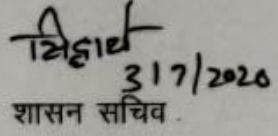 सिद्धार्थ
3/7/2020
शासन सचिव